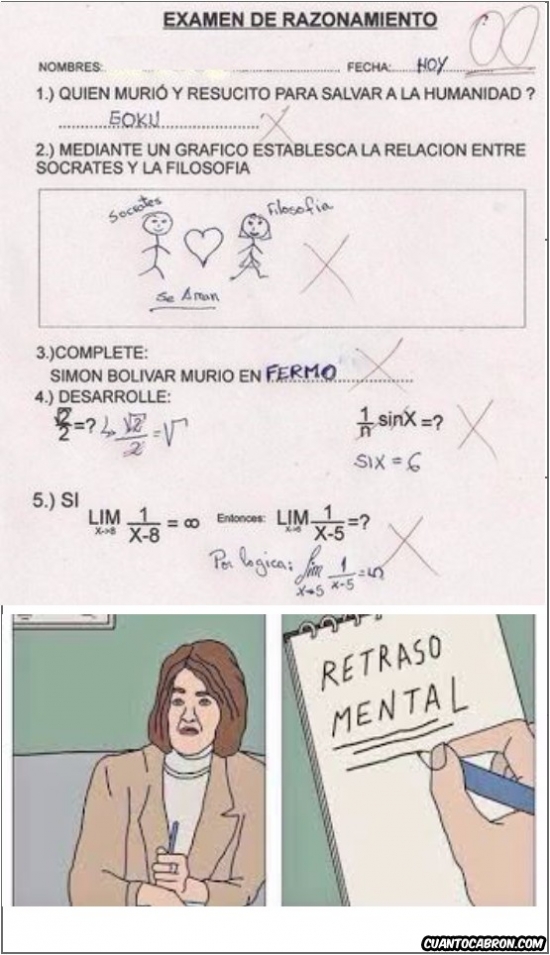 EXAMEN DE RAZONAMIENTO
00
NOMBRES: FECHA: HOY
1.) QUIEN MURIÓ Y RESUCITO PARA SALVAR A LA HUMANIDAD ?
GOKU
2.) MEDIANTE UN GRAFICO ESTABLESCA LA RELACION ENTRE
SOCRATES Y LA FILOSOFIA
Socrates Filosofia
Se Aman
3.)COMPLETE:
SIMON BOLIVAR MURIO EN FERMO
4.) DESARROLLE:
√2/2=? √2/2=√ 1/n sinX=?
six = 6
5.) SI
LIM X->8 1/X-8 = ∞ Entonces: LIM X->5 1/X-5=?
Por logica: lim x→5 1/x-5=5
RETRASO
MENTAL
CUANTOCABRON.COM